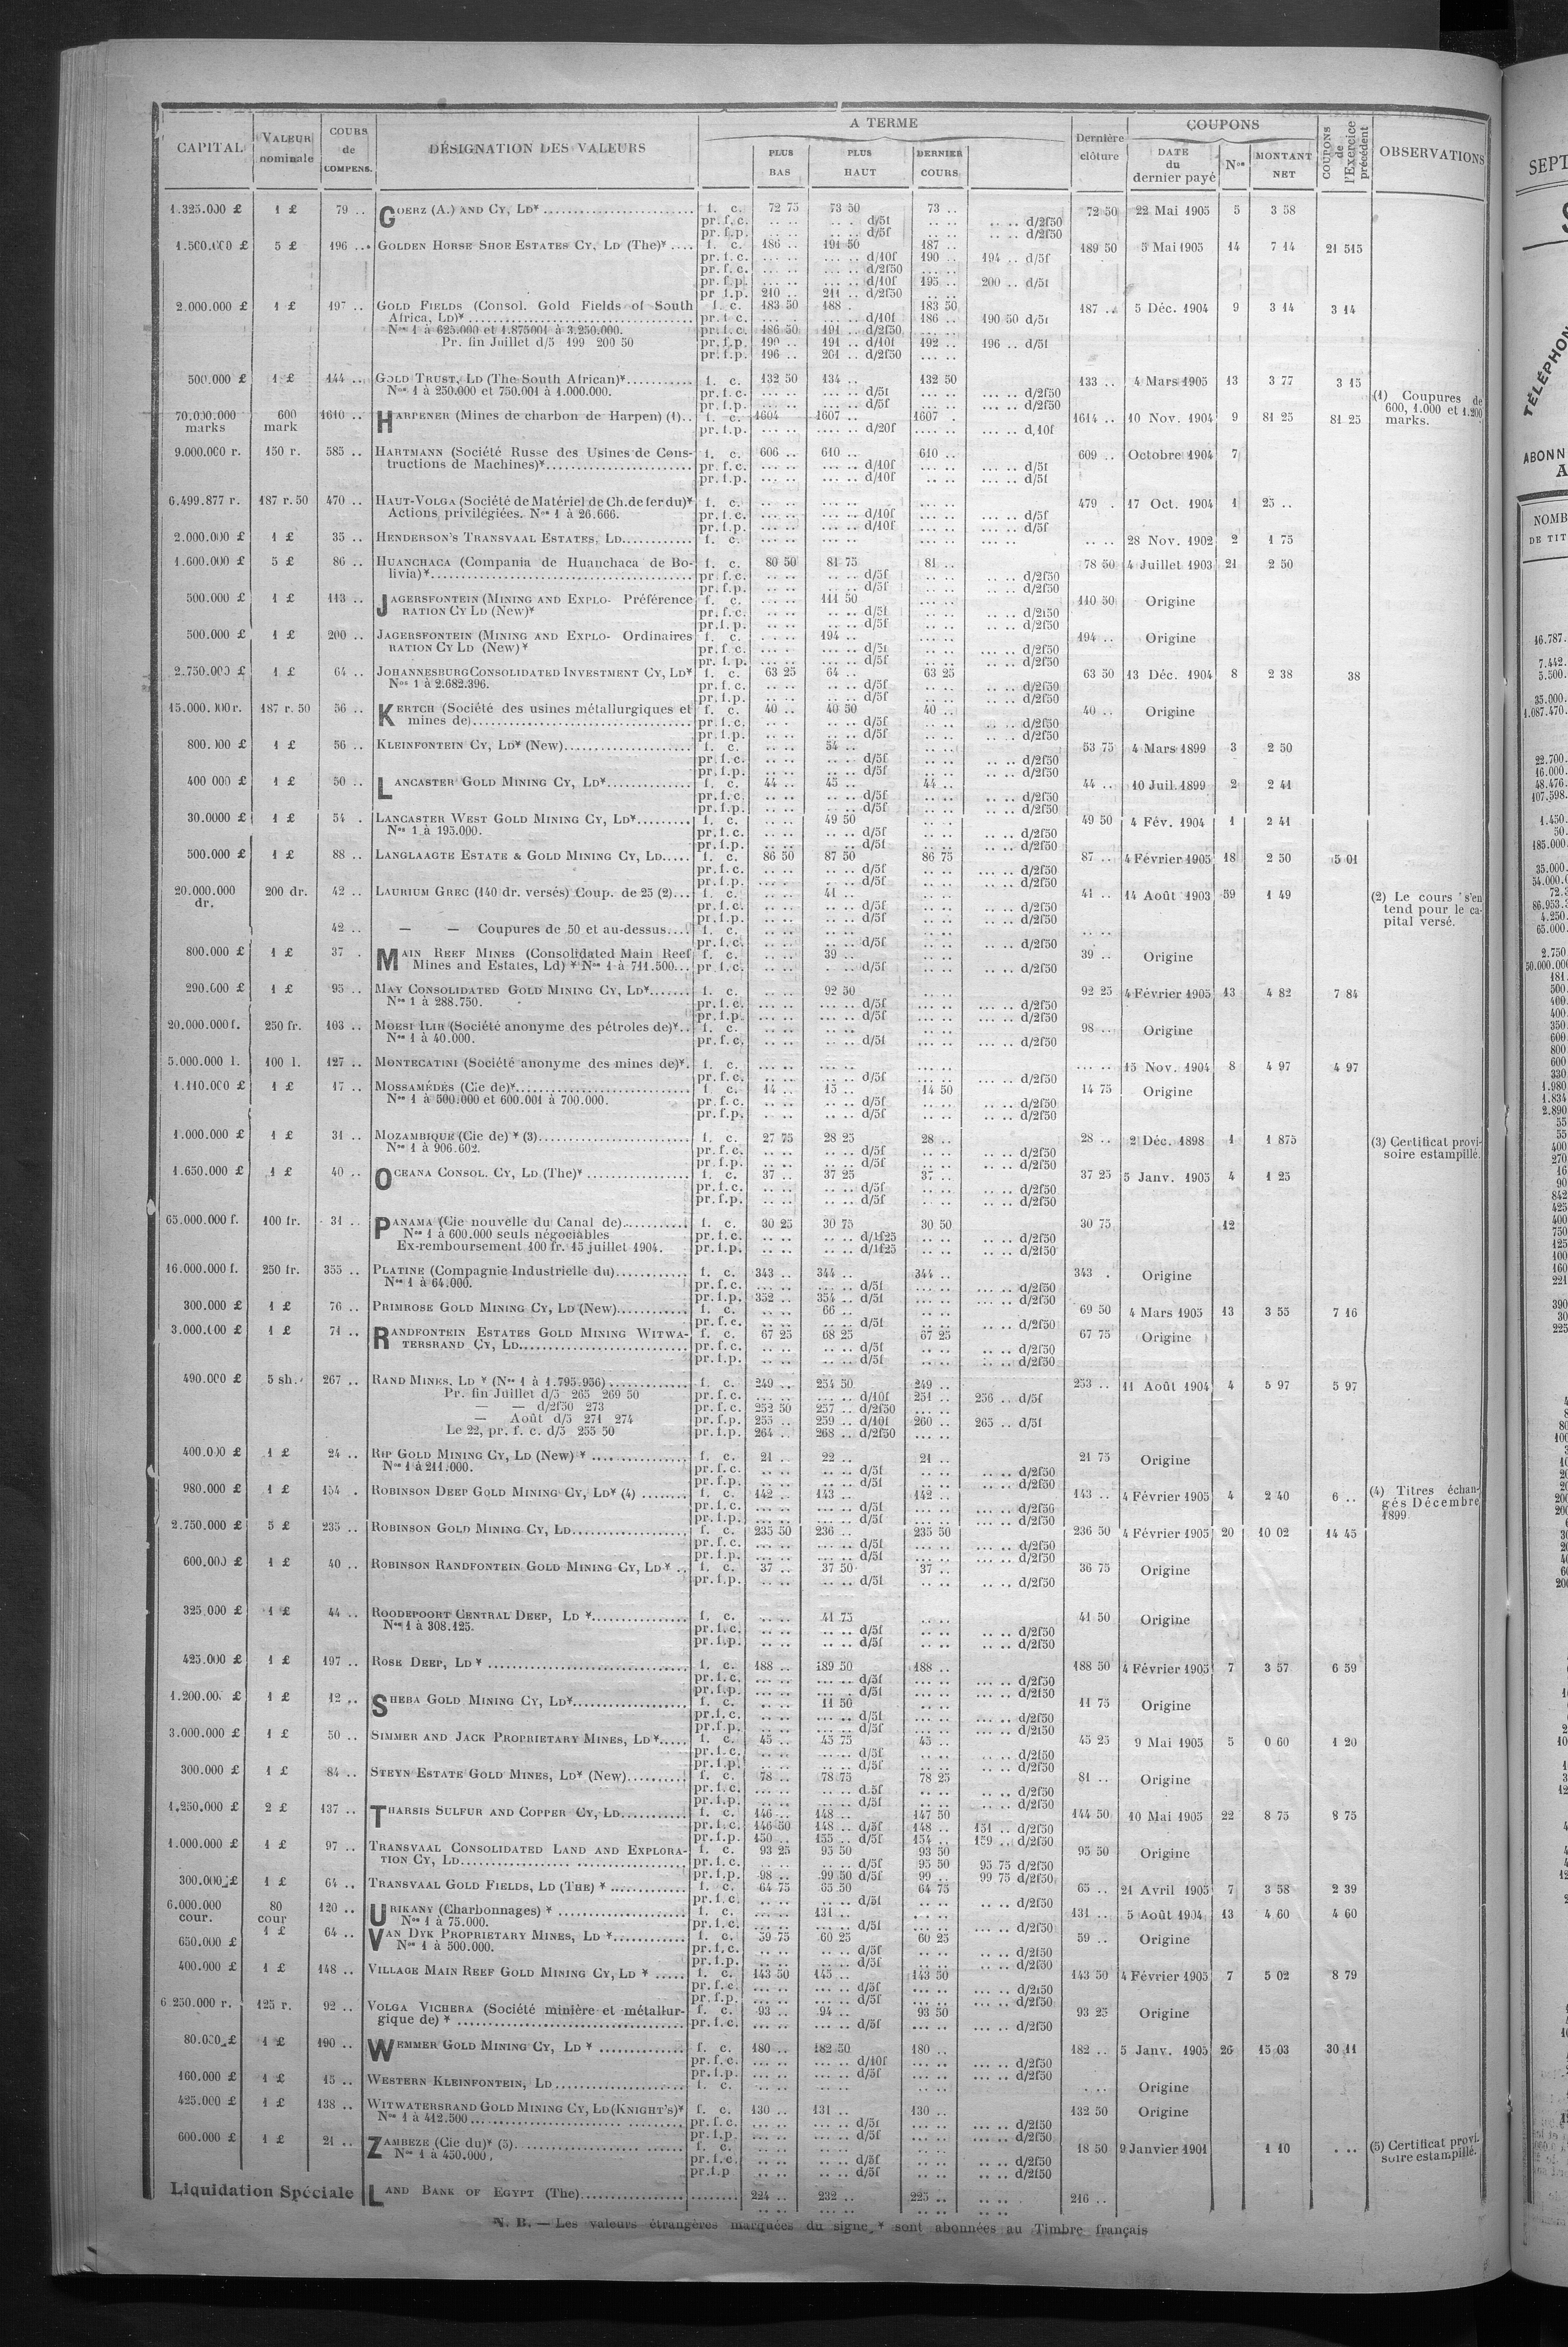 CAPITAL | VALEUR nominale | COURS de COMPENS. | DÉSIGNATION DES VALEURS | A TERME | PLUS BAS | PLUS HAUT | DERNIER COURS | Dernière clôture | COUPONS | DATE du dernier payé | Nos | MONTANT NET | COUPONS de l'Exercice précédent | OBSERVATIONS
1.325.000 £ 1 £ 79 .. GOERZ (A.) AND CY, LD* f. c. 72 75 73 50 73 .. 72 50 22 Mai 1905 5 3 58
pr. f. c. .. .. .. . d/5f .. .. .. .. d/2f50
pr. f.p. .. .. .. .. d/5f .. .. .. .. d/2f50
1.500.000 £ 5 £ 196 .. GOLDEN HORSE SHOE ESTATES CY, LD (The)* f. c. 186 .. 191 50 187 .. 189 50 5 Mai 1905 14 7 14 21 515
pr. f. c. ... .. ... .. d/10f 190 .. 194 .. d/5f
pr. f. c. ... .. ... .. d/2f50 ... ..
pr. f.p. ... .. ... .. d/10f 195 .. 200 .. d/5f
pr. f.p. 210 .. 211 .. d/2f50 .. ..
2.000.000 £ 1 £ 197 .. GOLD FIELDS (Consol. Gold Fields of South f. c. 183 50 188 . 183 50 187 .. 5 Déc. 1904 9 3 14 3 14
Africa, LD)* pr. f. c. ... .. ... .. d/10f 186 .. 190 50 d/5f
Nos 1 à 625.000 et 1.875001 à 3.250.000. pr. f. c. 186 50 191 .. d/2f50 ... ..
Pr. fin Juillet d/5 199 200 50 pr. f.p. 190 .. 191 .. d/10f 192 .. 196 .. d/5f
pr. f.p. 196 .. 201 .. d/2f50 ... ..
500.000 £ 1 £ 144 .. GOLD TRUST, LD (The South African)* f. c. 132 50 134 .. 132 50 133 .. 4 Mars 1905 13 3 77 3 15
Nos 1 à 250.000 et 750.001 à 1.000.000. pr. f. c. .. .. .. .. d/5f .. .. ... .. d/2f50
pr. f.p. .. .. .. .. d/5f .. .. ... .. d/2f50
(1) Coupures de 600, 1.000 et 1.200 marks.
70.000.000 marks 600 mark 1610 .. HARPENER (Mines de charbon de Harpen) (1).. f. c. 1604 1607 .. 1607 . 1614 .. 10 Nov. 1904 9 81 25 81 25
pr. f.p. ... .. .... .. d/20f .... .. ... .. d,10f
9.000.000 r. 150 r. 585 .. HARTMANN (Société Russe des Usines de Cons- f. c. 606 .. 610 .. 610 .. 609 .. Octobre 1904 7
tructions de Machines)* pr. f. c. ... .. ... .. d/10f ... .. ... .. d/5f
pr. f.p. ... .. ... .. d/10f .. .. ... .. d/5f
6.499.877 r. 187 r. 50 470 .. HAUT-VOLGA (Société de Matériel de Ch. de fer du)* f. c. ... .. ... .. ... .. 479 . 17 Oct. 1904 1 25 ..
Actions privilégiées. Nos 1 à 26.666. pr. f. c. ... .. ... .. d/10f ... .. ... .. d/5f
pr. f.p. ... .. ... .. d/10f ... .. ... .. d/5f
2.000.000 £ 1 £ 35 .. HENDERSON'S TRANSVAAL ESTATES, LD f. c. ... .. ... .. ... .. .. .. 28 Nov. 1902 2 1 75
1.600.000 £ 5 £ 86 .. HUANCHACA (Compania de Huanchaca de Bo- f. c. 80 50 81 75 81 .. 78 50 4 Juillet 1903 21 2 50
livia)* pr. f. c. .. .. .. .. d/5f .. .. .. .. d/2f50
pr. f.p. .. .. .. .. d/5f .. .. .. .. d/2f50
500.000 £ 1 £ 113 .. JAGERSFONTEIN (MINING AND EXPLO- Préférence f. c. .. .. 111 50 ... .. 110 50 Origine
RATION CY LD (New)* pr. f. c. .. .. .. .. d/5f .. .. .. .. d/2f50
pr. f.p. .. .. .. .. d/5f .. .. .. .. d/2f50
500.000 £ 1 £ 200 .. JAGERSFONTEIN (MINING AND EXPLO- Ordinaires f. c. ... .. 194 .. ... .. 194 .. Origine
RATION CY LD (New)* pr. f. c. ... .. ... .. d/5f .. .. .. .. d/2f50
pr. f. p. ... .. ... .. d/5f .. .. .. .. d/2f50
2.750.000 £ 1 £ 64 .. JOHANNESBURG CONSOLIDATED INVESTMENT CY, LD* f. c. 63 25 64 .. 63 25 63 50 13 Déc. 1904 8 2 38 38
Nos 1 à 2.682.396. pr. f. c. .. .. .. .. d/5f .. .. .. .. d/2f50
pr. f.p. .. .. .. .. d/5f .. .. .. .. d/2f50
15.000. 00r. 187 r. 50 56 .. KERTCH (Société des usines métallurgiques et f. c. 40 .. 40 50 40 .. 40 .. Origine
mines de) pr. f. c. .. .. .. .. d/5f .. .. .. .. d/2f50
pr. f.p. .. .. .. .. d/5f .. .. .. .. d/2f50
800. 00 £ 1 £ 56 .. KLEINFONTEIN CY, LD* (New) f. c. .. .. 54 .. .. .. 53 75 4 Mars 1899 3 2 50
pr. f. c. .. .. .. .. d/5f .. .. .. .. d/2f50
pr. f.p. .. .. .. .. d/5f .. .. .. .. d/2f50
400 000 £ 1 £ 50 .. LANCASTER GOLD MINING CY, LD* f. c. 44 .. 45 .. 44 .. 44 .. 10 Juil. 1899 2 2 41
pr. f. c. .. .. .. .. d/5f .. .. .. .. d/2f50
pr. f.p. .. .. .. .. d/5f .. .. .. .. d/2f50
30.0000 £ 1 £ 54 . LANCASTER WEST GOLD MINING CY, LD* f. c. .. .. 49 50 .. .. 49 50 4 Fév. 1904 1 2 41
Nos 1 à 195.000. pr. f. c. .. .. .. .. d/5f .. .. .. .. d/2f50
pr. f.p. .. .. .. .. d/5f .. .. .. .. d/2f50
500.000 £ 1 £ 88 .. LANGLAAGTE ESTATE & GOLD MINING CY, LD f. c. 86 50 87 50 86 75 87 .. 4 Février 1905 18 2 50 5 01
pr. f. c. .. .. .. .. d/5f .. .. .. .. d/2f50
pr. f.p. .. .. .. .. d/5f .. .. .. .. d/2f50
20.000.000 dr. 200 dr. 42 .. LAURIUM GREC (140 dr. versés) Coup. de 25 (2) f. c. .. .. 41 .. .. .. 41 .. 14 Août 1903 59 1 49
pr. f. c. .. .. .. .. d/5f .. .. .. .. d/2f50
pr. f.p. .. .. .. .. d/5f .. .. .. .. d/2f50
(2) Le cours s'en tend pour le ca- pital versé.
42 .. — — Coupures de 50 et au-dessus f. c. .. .. .. .. .. .. .. ..
pr. f. c. .. .. .. .. d/5f .. .. .. .. d/2f50
800.000 £ 1 £ 37 . MAIN REEF MINES (Consolidated Main Reef f. c. .. .. 39 .. .. .. 39 .. Origine
Mines and Estates, Ld) * Nos 1 à 711.500 pr. f. c. .. .. .. .. d/5f .. .. .. .. d/2f50
290.000 £ 1 £ 95 .. MAY CONSOLIDATED GOLD MINING CY, LD* f. c. .. .. 92 50 .. .. 92 25 4 Février 1905 13 4 82 7 84
Nos 1 à 288.750. pr. f. c. .. .. ... .. d/5f .. .. ... .. d/2f50
pr. f.p. .. .. ... .. d/5f .. .. ... .. d/2f50
20.000.000 f. 250 fr. 103 .. MOESI ILIR (Société anonyme des pétroles de)* f. c. .. .. .. .. .. .. 98 .. Origine
Nos 1 à 40.000. pr. f. c. .. .. .. .. d/5f .. .. .. .. d/2f50
5.000.000 l. 100 l. 127 .. MONTECATINI (Société anonyme des mines de)*. f. c. ... .. ... .. ... .. ... .. 15 Nov. 1904 8 4 97 4 97
pr. f. c. .. .. .. .. d/5f .. .. .. .. d/2f50
1.110.000 £ 1 £ 17 .. MOSSAMÉDÈS (Cie de)* f. c. 14 .. 15 .. 14 50 14 75 Origine
Nos 1 à 500.000 et 600.001 à 700.000. pr. f. c. .. .. .. .. d/5f .. .. .. .. d/2f50
pr. f.p. .. .. .. .. d/5f .. .. .. .. d/2f50
1.000.000 £ 1 £ 31 .. MOZAMBIQUE (Cie de) * (3) f. c. 27 75 28 25 28 .. 28 .. 2 Déc. 1898 1 1 875
Nos 1 à 906.602. pr. f. c. .. .. .. .. d/5f .. .. .. .. d/2f50
pr. f.p. .. .. .. .. d/5f .. .. .. .. d/2f50
(3) Certificat provi- soire estampillé.
1.650.000 £ 1 £ 40 .. OCEANA CONSOL. CY, LD (The)* f. c. 37 .. 37 25 37 .. 37 25 5 Janv. 1905 4 1 25
pr. f. c. .. .. .. .. d/5f .. .. .. .. d/2f50
pr. f.p. .. .. .. .. d/5f .. .. .. .. d/2f50
65.000.000 f. 100 fr. 31 .. PANAMA (Cie nouvelle du Canal de) f. c. 30 25 30 75 30 50 30 75 12
Nos 1 à 600.000 seuls négociables pr. f. c. .. .. .. .. d/1f25 .. .. .. .. d/2f50
Ex-remboursement 100 fr. 15 juillet 1904. pr. f.p. .. .. .. .. d/1f25 .. .. .. .. d/2f50
16.000.000 f. 250 fr. 355 .. PLATINE (Compagnie Industrielle du) f. c. 343 .. 344 .. 344 .. 343 . Origine
Nos 1 à 64.000. pr. f. c. ... .. ... .. d/5f ... .. ... .. d/2f50
pr. f.p. 352 .. 354 .. d/5f ... .. ... .. d/2f50
300.000 £ 1 £ 76 .. PRIMROSE GOLD MINING CY, LD (New) f. c. .. .. 66 .. .. .. 69 50 4 Mars 1905 13 3 55 7 16
pr. f. c. .. .. .. .. d/5f .. .. .. .. d/2f50
3.000.000 £ 1 £ 71 .. RANDFONTEIN ESTATES GOLD MINING WITWA- f. c. 67 25 68 25 67 25 67 75 Origine
TERSRAND CY, LD pr. f. c. .. .. .. .. d/5f .. .. .. .. d/2f50
pr. f.p. .. .. .. .. d/5f .. .. .. .. d/2f50
490.000 £ 5 sh. 267 .. RAND MINES, LD * (Nos 1 à 1.795.956) f. c. 249 .. 254 50 249 .. 253 .. 11 Août 1904 4 5 97 5 97
Pr. fin Juillet d/5 265 269 50 pr. f. c. ... .. ... .. d/10f 251 .. 256 .. d/5f
— — d/2f50 273 pr. f. c. 252 50 257 .. d/2f50 ... ..
— Août d/5 271 274 pr. f.p. 255 .. 259 .. d/10f 260 .. 265 .. d/5f
Le 22, pr. f. c. d/5 255 50 pr. f.p. 264 .. 268 .. d/2f50 ... ..
400.000 £ 1 £ 24 .. RIP GOLD MINING CY, LD (New) * f. c. 21 .. 22 .. 21 .. 21 75 Origine
Nos 1 à 211.000. pr. f. c. .. .. .. .. d/5f .. .. .. .. d/2f50
pr. f.p. .. .. .. .. d/5f .. .. .. .. d/2f50
980.000 £ 1 £ 154 . ROBINSON DEEP GOLD MINING CY, LD* (4) f. c. 142 .. 143 .. 142 .. 143 .. 4 Février 1905 4 2 40 6 ..
pr. f. c. ... .. ... .. d/5f ... .. ... .. d/2f50
pr. f.p. ... .. ... .. d/5f ... .. ... .. d/2f50
(4) Titres échan- gés Décembre 1899.
2.750.000 £ 5 £ 235 .. ROBINSON GOLD MINING CY, LD f. c. 235 50 236 .. 235 50 236 50 4 Février 1905 20 10 02 14 45
pr. f. c. ... .. ... .. d/5f ... .. ... .. d/2f50
pr. f.p. ... .. ... .. d/5f ... .. ... .. d/2f50
600.000 £ 1 £ 40 .. ROBINSON RANDFONTEIN GOLD MINING CY, LD * f. c. 37 .. 37 50 37 .. 36 75 Origine
pr. f.p. .. .. .. .. d/5f .. .. .. .. d/2f50
325.000 £ 1 £ 44 .. ROODEPOORT CENTRAL DEEP, LD * f. c. .. .. 41 75 .. .. 41 50 Origine
Nos 1 à 308.125. pr. f. c. .. .. .. .. d/5f .. .. .. .. d/2f50
pr. f.p. .. .. .. .. d/5f .. .. .. .. d/2f50
425.000 £ 1 £ 197 .. ROSE DEEP, LD * f. c. 188 .. 189 50 188 .. 188 50 4 Février 1905 7 3 57 6 59
pr. f. c. ... .. ... .. d/5f ... .. ... .. d/2f50
pr. f.p. ... .. ... .. d/5f ... .. ... .. d/2f50
1.200.00. £ 1 £ 12 .. SHEBA GOLD MINING CY, LD* f. c. .. .. 11 50 .. .. 11 75 Origine
pr. f. c. .. .. .. .. d/5f .. .. ... .. d/2f50
pr. f.p. .. .. .. .. d/5f .. .. ... .. d/2f50
3.000.000 £ 1 £ 50 .. SIMMER AND JACK PROPRIETARY MINES, LD* f. c. 45 .. 45 75 45 .. 45 25 9 Mai 1905 5 0 60 1 20
pr. f. c. .. .. .. .. d/5f .. .. .. .. d/2f50
pr. f.p. .. .. .. .. d/5f .. .. .. .. d/2f50
300.000 £ 1 £ 84 .. STEYN ESTATE GOLD MINES, LD* (New) f. c. 78 .. 78 75 78 25 81 .. Origine
pr. f. c. .. .. .. .. d.5f .. .. .. .. d/2f50
pr. f.p. .. .. .. .. d/5f .. .. .. .. d/2f50
1.250.000 £ 2 £ 137 .. THARSIS SULFUR AND COPPER CY, LD f. c. 146 .. 148 .. 147 50 144 50 10 Mai 1905 22 8 75 8 75
pr. f. c. 146 50 148 .. d/5f 148 .. 151 .. d/2f50
pr. f.p. 150 .. 155 .. d/5f 154 .. 159 .. d/2f50
1.000.000 £ 1 £ 97 .. TRANSVAAL CONSOLIDATED LAND AND EXPLORA- f. c. 93 25 95 50 93 50 95 50 Origine
TION CY, LD pr. f. c. .. .. .. .. d/5f 95 50 95 75 d/2f50
pr. f.p. 98 .. 99 50 d/5f 99 .. 99 75 d/2f50
300.000 £ 1 £ 64 .. TRANSVAAL GOLD FIELDS, LD (THE) * f. c. 64 75 65 50 64 75 65 .. 21 Avril 1905 7 3 58 2 39
pr. f. c. .. .. .. .. d/5f .. .. .. .. d/2f50
6.000.000 cour. 80 cour 120 .. URIKANY (Charbonnages) * f. c. ... .. 131 .. ... .. 131 .. 5 Août 1904 13 4 60 4 60
Nos 1 à 75.000. pr. f. c. ... .. ... .. d/5f ... .. ... .. d/2f50
650.000 £ 1 £ 64 .. VAN DYK PROPRIETARY MINES, LD * f. c. 59 75 60 25 60 25 59 .. Origine
Nos 1 à 500.000. pr. f. c. .. .. .. .. d/5f .. .. .. .. d/2f50
pr. f.p. .. .. .. .. d/5f .. .. .. .. d/2f50
400.000 £ 1 £ 148 .. VILLAGE MAIN REEF GOLD MINING CY, LD * f. c. 143 50 145 .. 143 50 143 50 4 Février 1905 7 5 02 8 79
pr. f. c. ... .. ... .. d/5f ... .. ... .. d/2f50
pr. f.p. ... .. ... .. d/5f ... .. ... .. d/2f50
6 250.000 r. 125 r. 92 .. VOLGA VICHERA (Société minière et métallur- f. c. 93 .. 94 .. 93 50 93 25 Origine
gique de) * pr. f. c. .. .. .. .. d/5f ... .. ... .. d/2f50
80.000 £ 1 £ 190 .. WEMMER GOLD MINING CY, LD * f. c. 180 .. 182 50 180 .. 182 .. 5 Janv. 1905 26 15 03 30 11
pr. f. c. ... .. ... .. d/10f ... .. ... .. d/2f50
pr. f.p. ... .. ... .. d/5f ... .. ... .. d/2f50
160.000 £ 1 £ 15 .. WESTERN KLEINFONTEIN, LD f. c. .. .. .. .. .. .. . .. Origine
425.000 £ 1 £ 138 .. WITWATERSRAND GOLD MINING CY, LD (KNIGHT'S)* f. c. 130 .. 131 .. 130 .. 132 50 Origine
Nos 1 à 412.500 pr. f. c. ... .. ... .. d/5f ... .. ... .. d/2f50
pr. f.p. ... .. ... .. d/5f ... .. ... .. d/2f50
600.000 £ 1 £ 21 .. ZAMBEZE (Cie du)* (5) f. c. .. .. .. .. .. .. 18 50 9 Janvier 1901 1 10 . ..
Nos 1 à 450.000. pr. f. c. .. .. .. .. d/5f .. .. .. .. d/2f50
pr. f.p .. .. .. .. d/5f .. .. .. .. d/2f50
(5) Certificat provi- soire estampillé.
Liquidation Spéciale LAND BANK OF EGYPT (The) 224 .. 232 .. 225 .. .. .. 216 ..
N. B. — Les valeurs étrangères marquées du signe * sont abonnées au Timbre français
SEPT
TÉLÉPHON
ABONN
A
NOMB
DE TIT